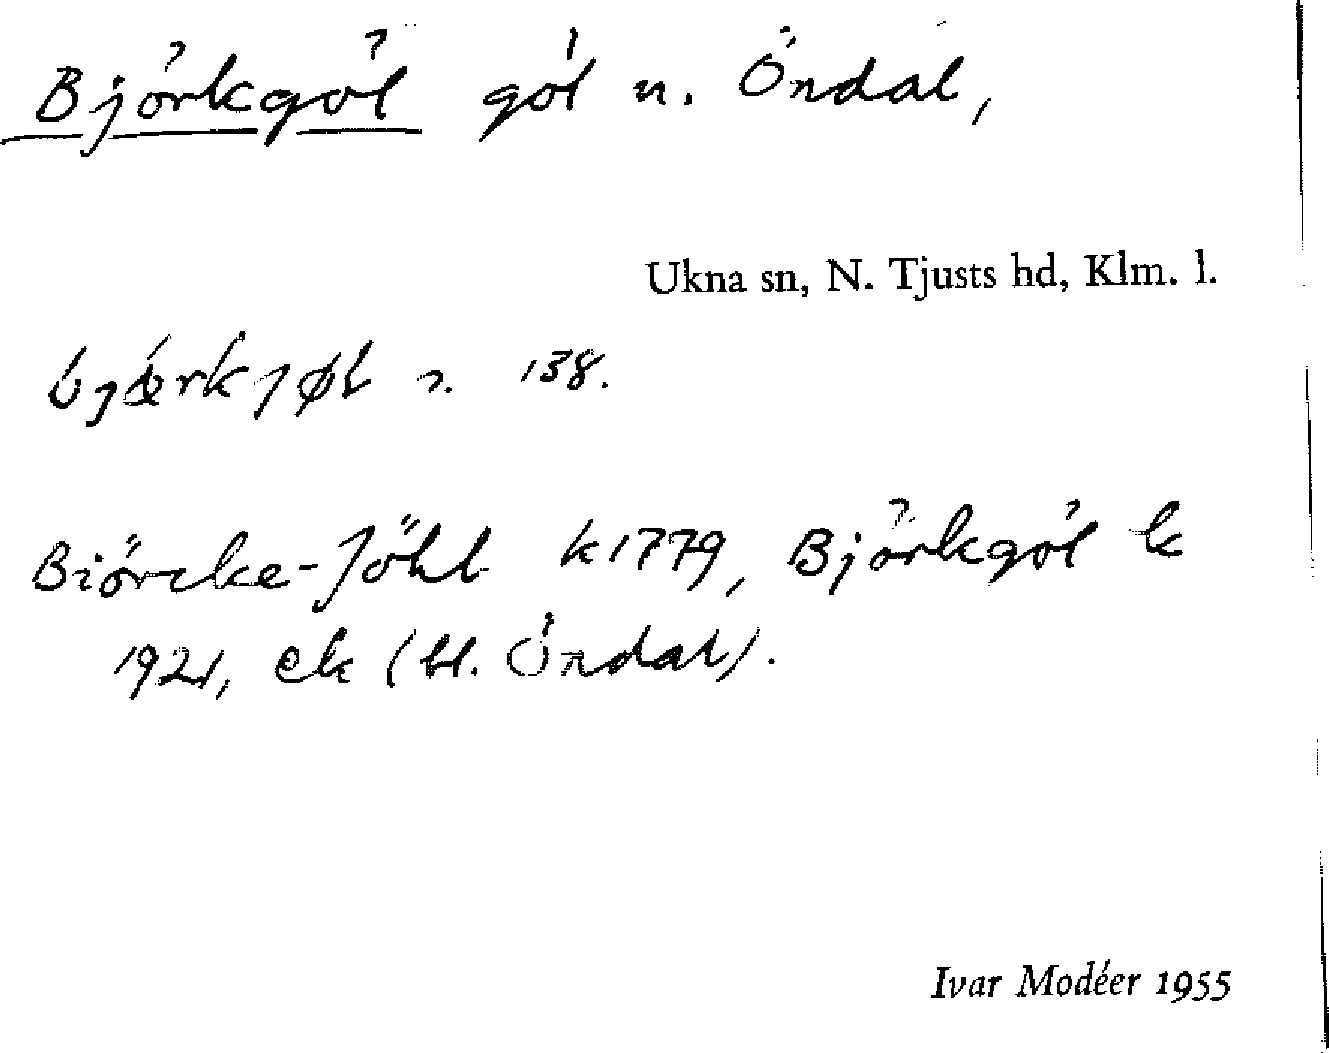 Björkgöl göl n. Öndal,
Ukna sn, N. Tjusts hd, Klm. l.
bjærkjøl n. 138.
Biörcke-Jöhl k 1779, Björkgöl k
1921, ek (bl. Öndal).
Ivar Modéer 1955